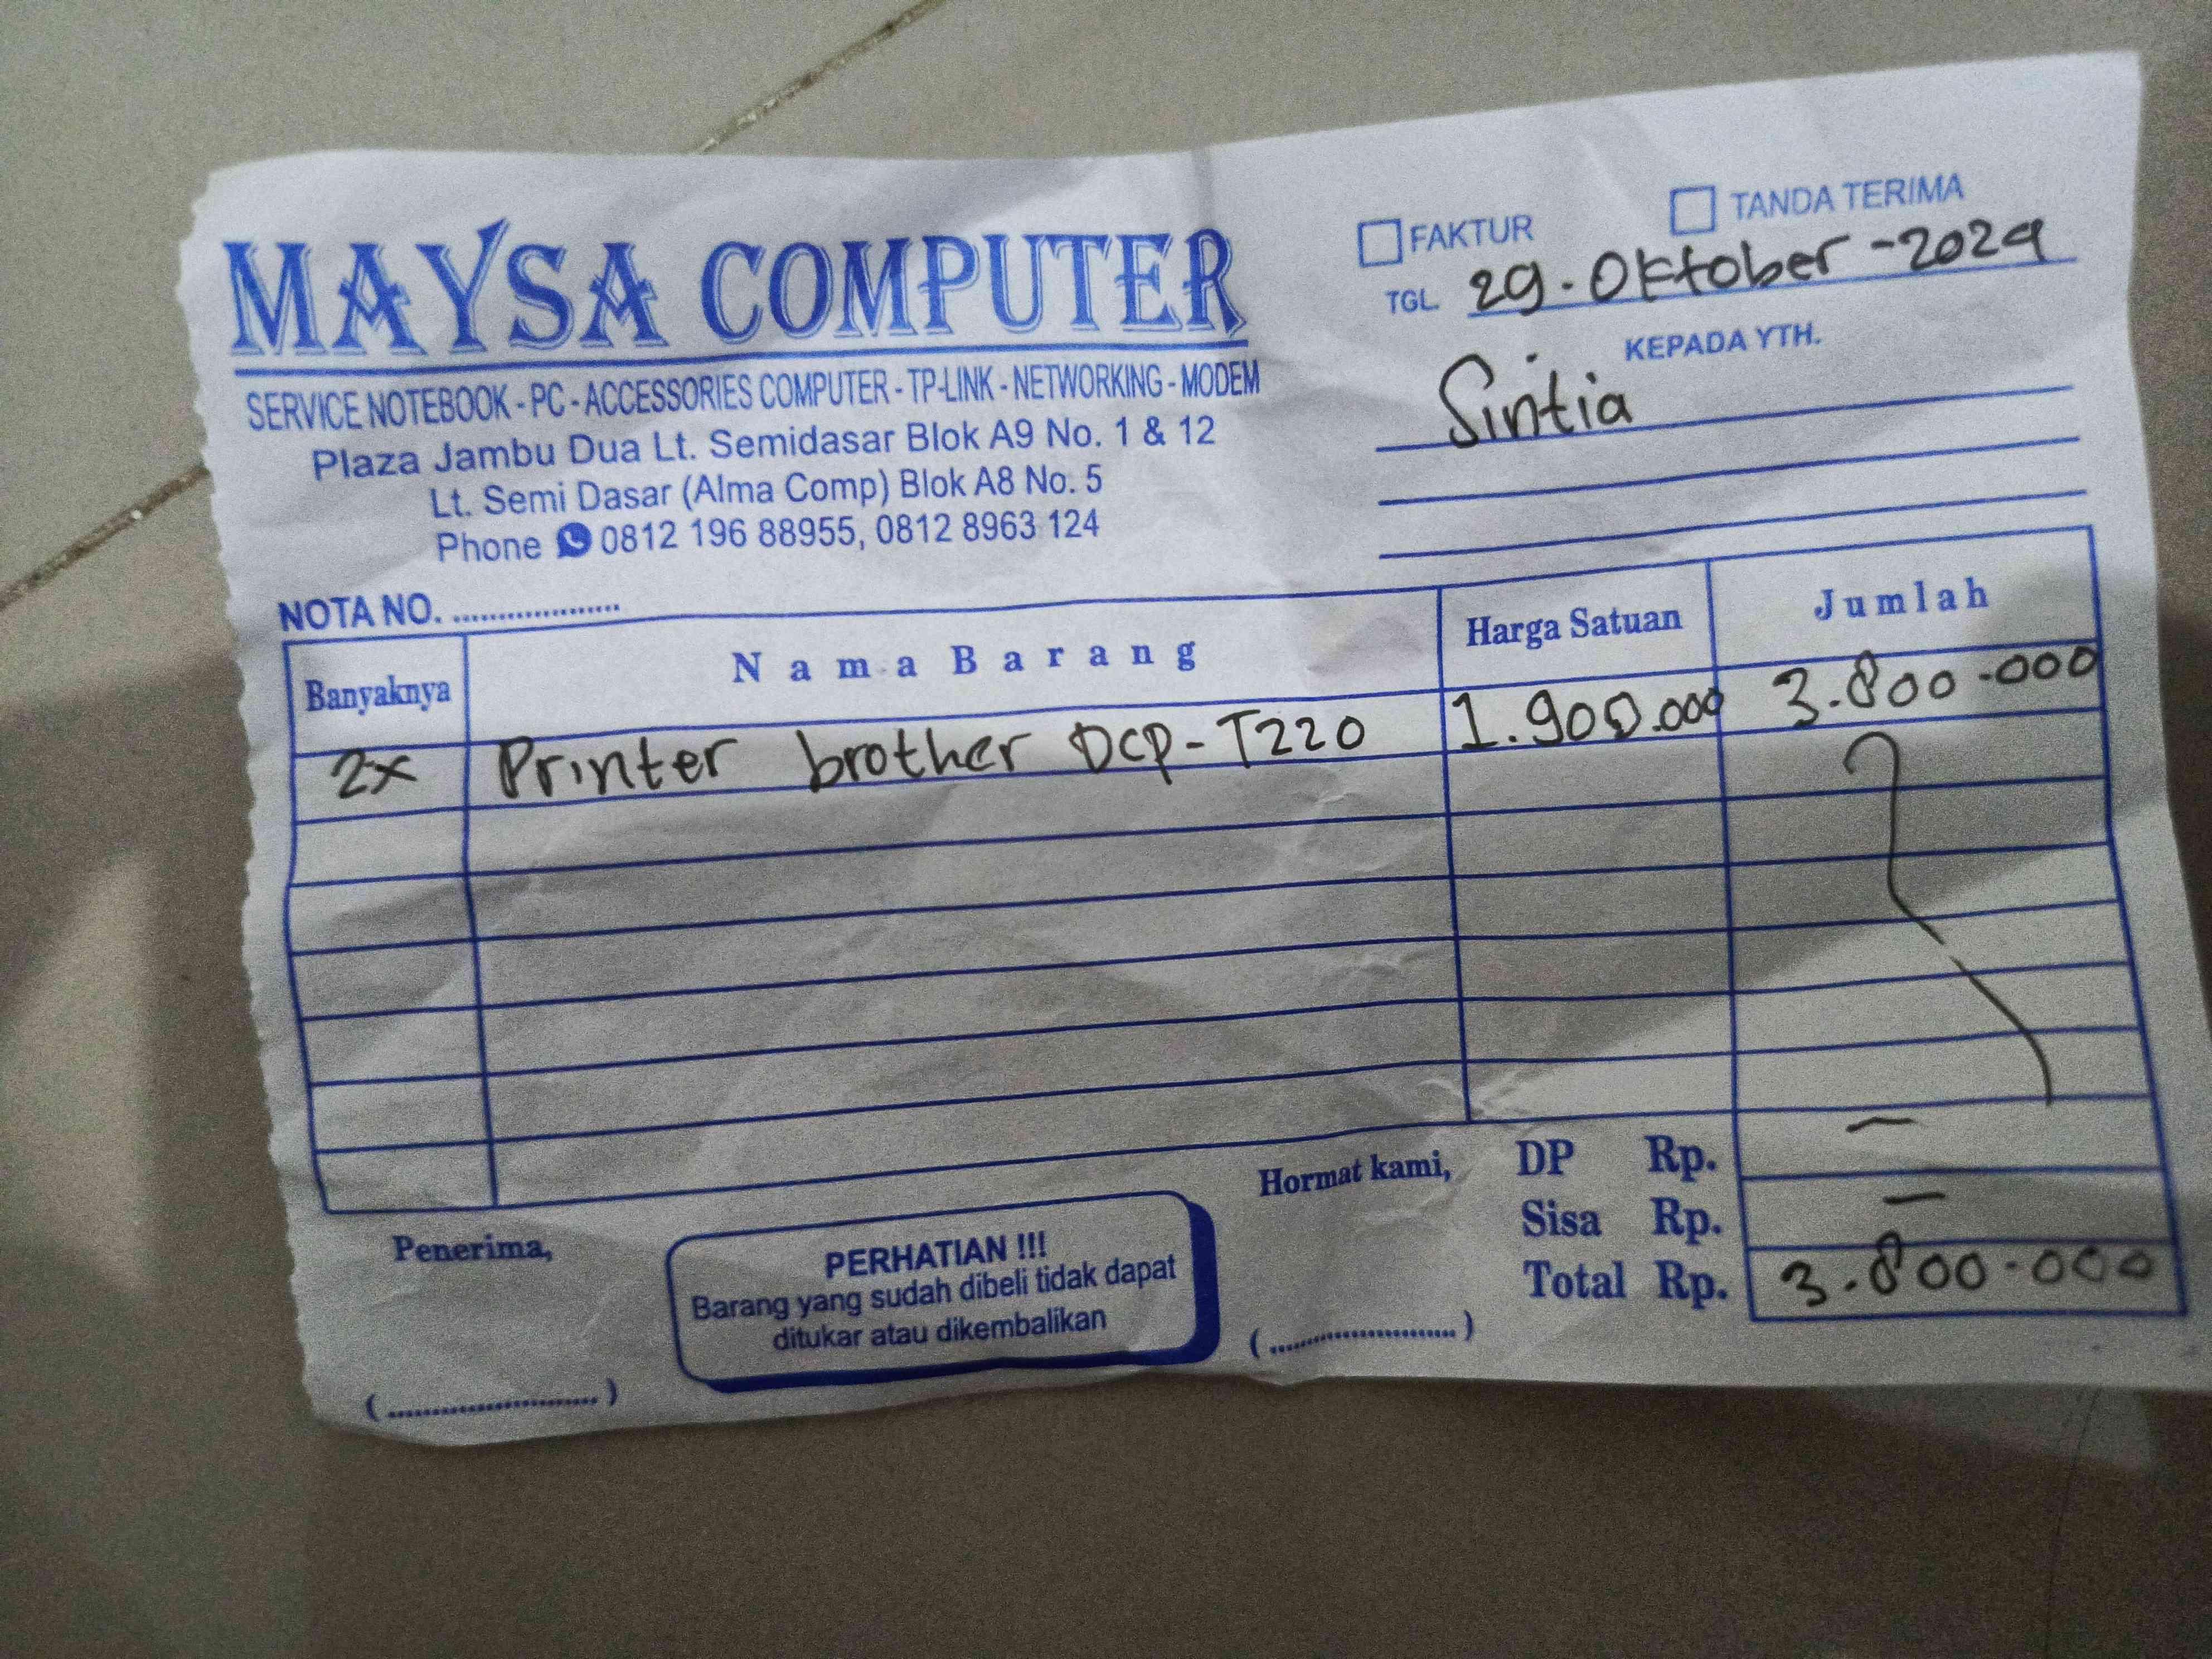 MAYSA COMPUTER
SERVICE NOTEBOOK - PC - ACCESSORIES COMPUTER - TP-LINK - NETWORKING - MODEM
Plaza Jambu Dua Lt. Semidasar Blok A9 No. 1 & 12
Lt. Semi Dasar (Alma Comp) Blok A8 No. 5
Phone 0812 196 88955, 0812 8963 124
FAKTUR TANDA TERIMA
TGL. 29-Oktober-2024
KEPADA YTH.
Sintia
NOTA NO. ....................
Banyaknya Nama Barang Harga Satuan Jumlah
2x Printer brother DCP-T220 1.900.000 3.800.000
DP Rp. -
Sisa Rp. -
Total Rp. 3.800.000
Penerima,
(..............................)
PERHATIAN !!!
Barang yang sudah dibeli tidak dapat
ditukar atau dikembalikan
Hormat kami,
(..........................)